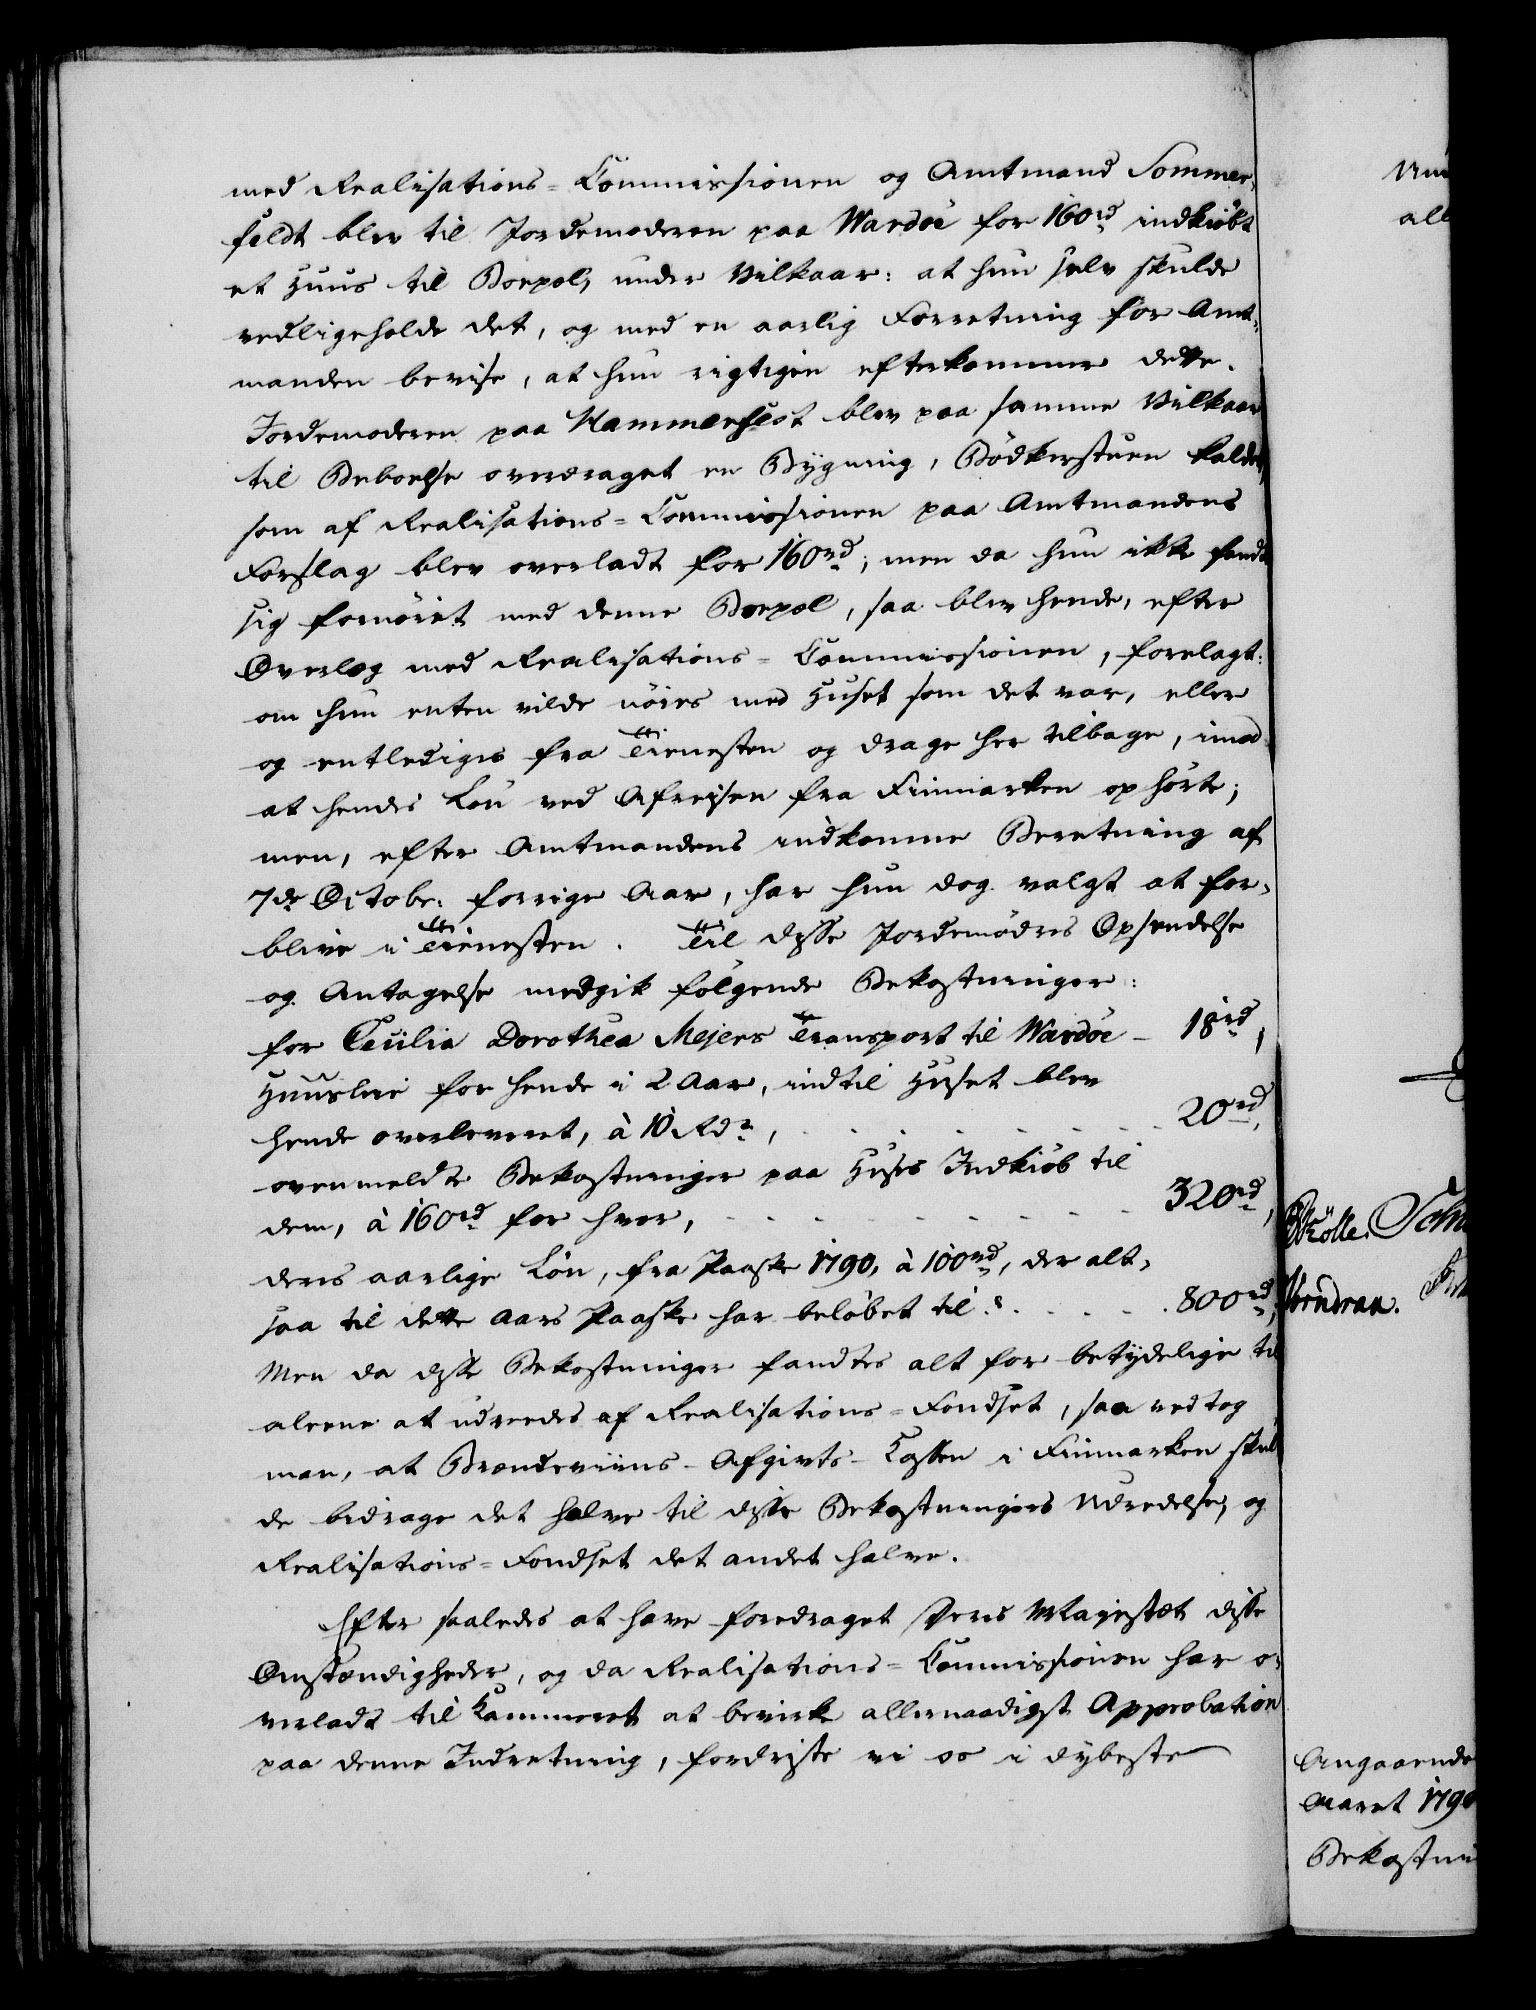 med Realisations-Commissionen og Amtmand Sommer-
feldt blev til Jordemoderen paa Wardöe for 160rd indkiøbt
et Huus til Boepæl, under Vilkaar: at hun selv skulde
vedligeholde det, og med en aarlig Forretning for Amt-
manden bevise, at hun rigtigen efterkommer dette.
Jordemoderen paa Hammerfest blev paa samme Vilkaar
til Beboelse overdraget en Bygning, Bödkerstuen kaldet,
som af Realisations-Commissionen paa Amtmandens
Forslag blev overladt for 160rd; men da hun ikke fandt
sig fornöiet med denne Boepæl, saa blev hende, efter
Overlæg med Realisations-Commissionen, forelagt:
om hun enten vilde nöies med Huset som det var, eller
og entlediges fra Tienesten og drage her tilbage, imod
at hendes Lön ved Afreisen fra Finmarken ophörte;
men, efter Amtmandens indkomne Beretning af
7de Octobr: forrige Aar, har hun dog valgt at for-
blive i Tienesten. Til disse Jordemödres Opsendelse
og Antagelse medgik fölgende Bekostninger:
for Cecilia Dorothea Mejers Transport til Wardöe - 18rd,
Huusleie for hende i 2 Aar, indtil Huset blev
hende overleveret, à 10 Rdr, . . . . . . 20rd,
ovenmeldte Bekostninger paa Huses Indkiöb til
dem, à 160rd for hver, . . . . . . 320rd,
deres aarlige Lön, fra Paaske 1790, à 100rd, der alt-
saa til dette Aars Paaske har belöbet til . . . . 800rd,
Men da disse Bekostninger fandtes alt for betydelige til
aleene at udredes af Realisations-Fondset, saa vedtog
man, at Brændeviins-Afgivts-Cassen i Finmarken skul-
de bidrage det halve til disse Bekostningers Udredelse, og
Realisations-Fondset det andet halve.
Efter saaledes at have foredraget Deres Majestæt disse
Omstændigheder, og da Realisations-Commissionen har o-
verladt til Kammeret at bevirke allernaadigst Approbation
paa denne Indretning, fordriste vi os i dybeste
all
Angaaende
Aaret 1790
Bekostni